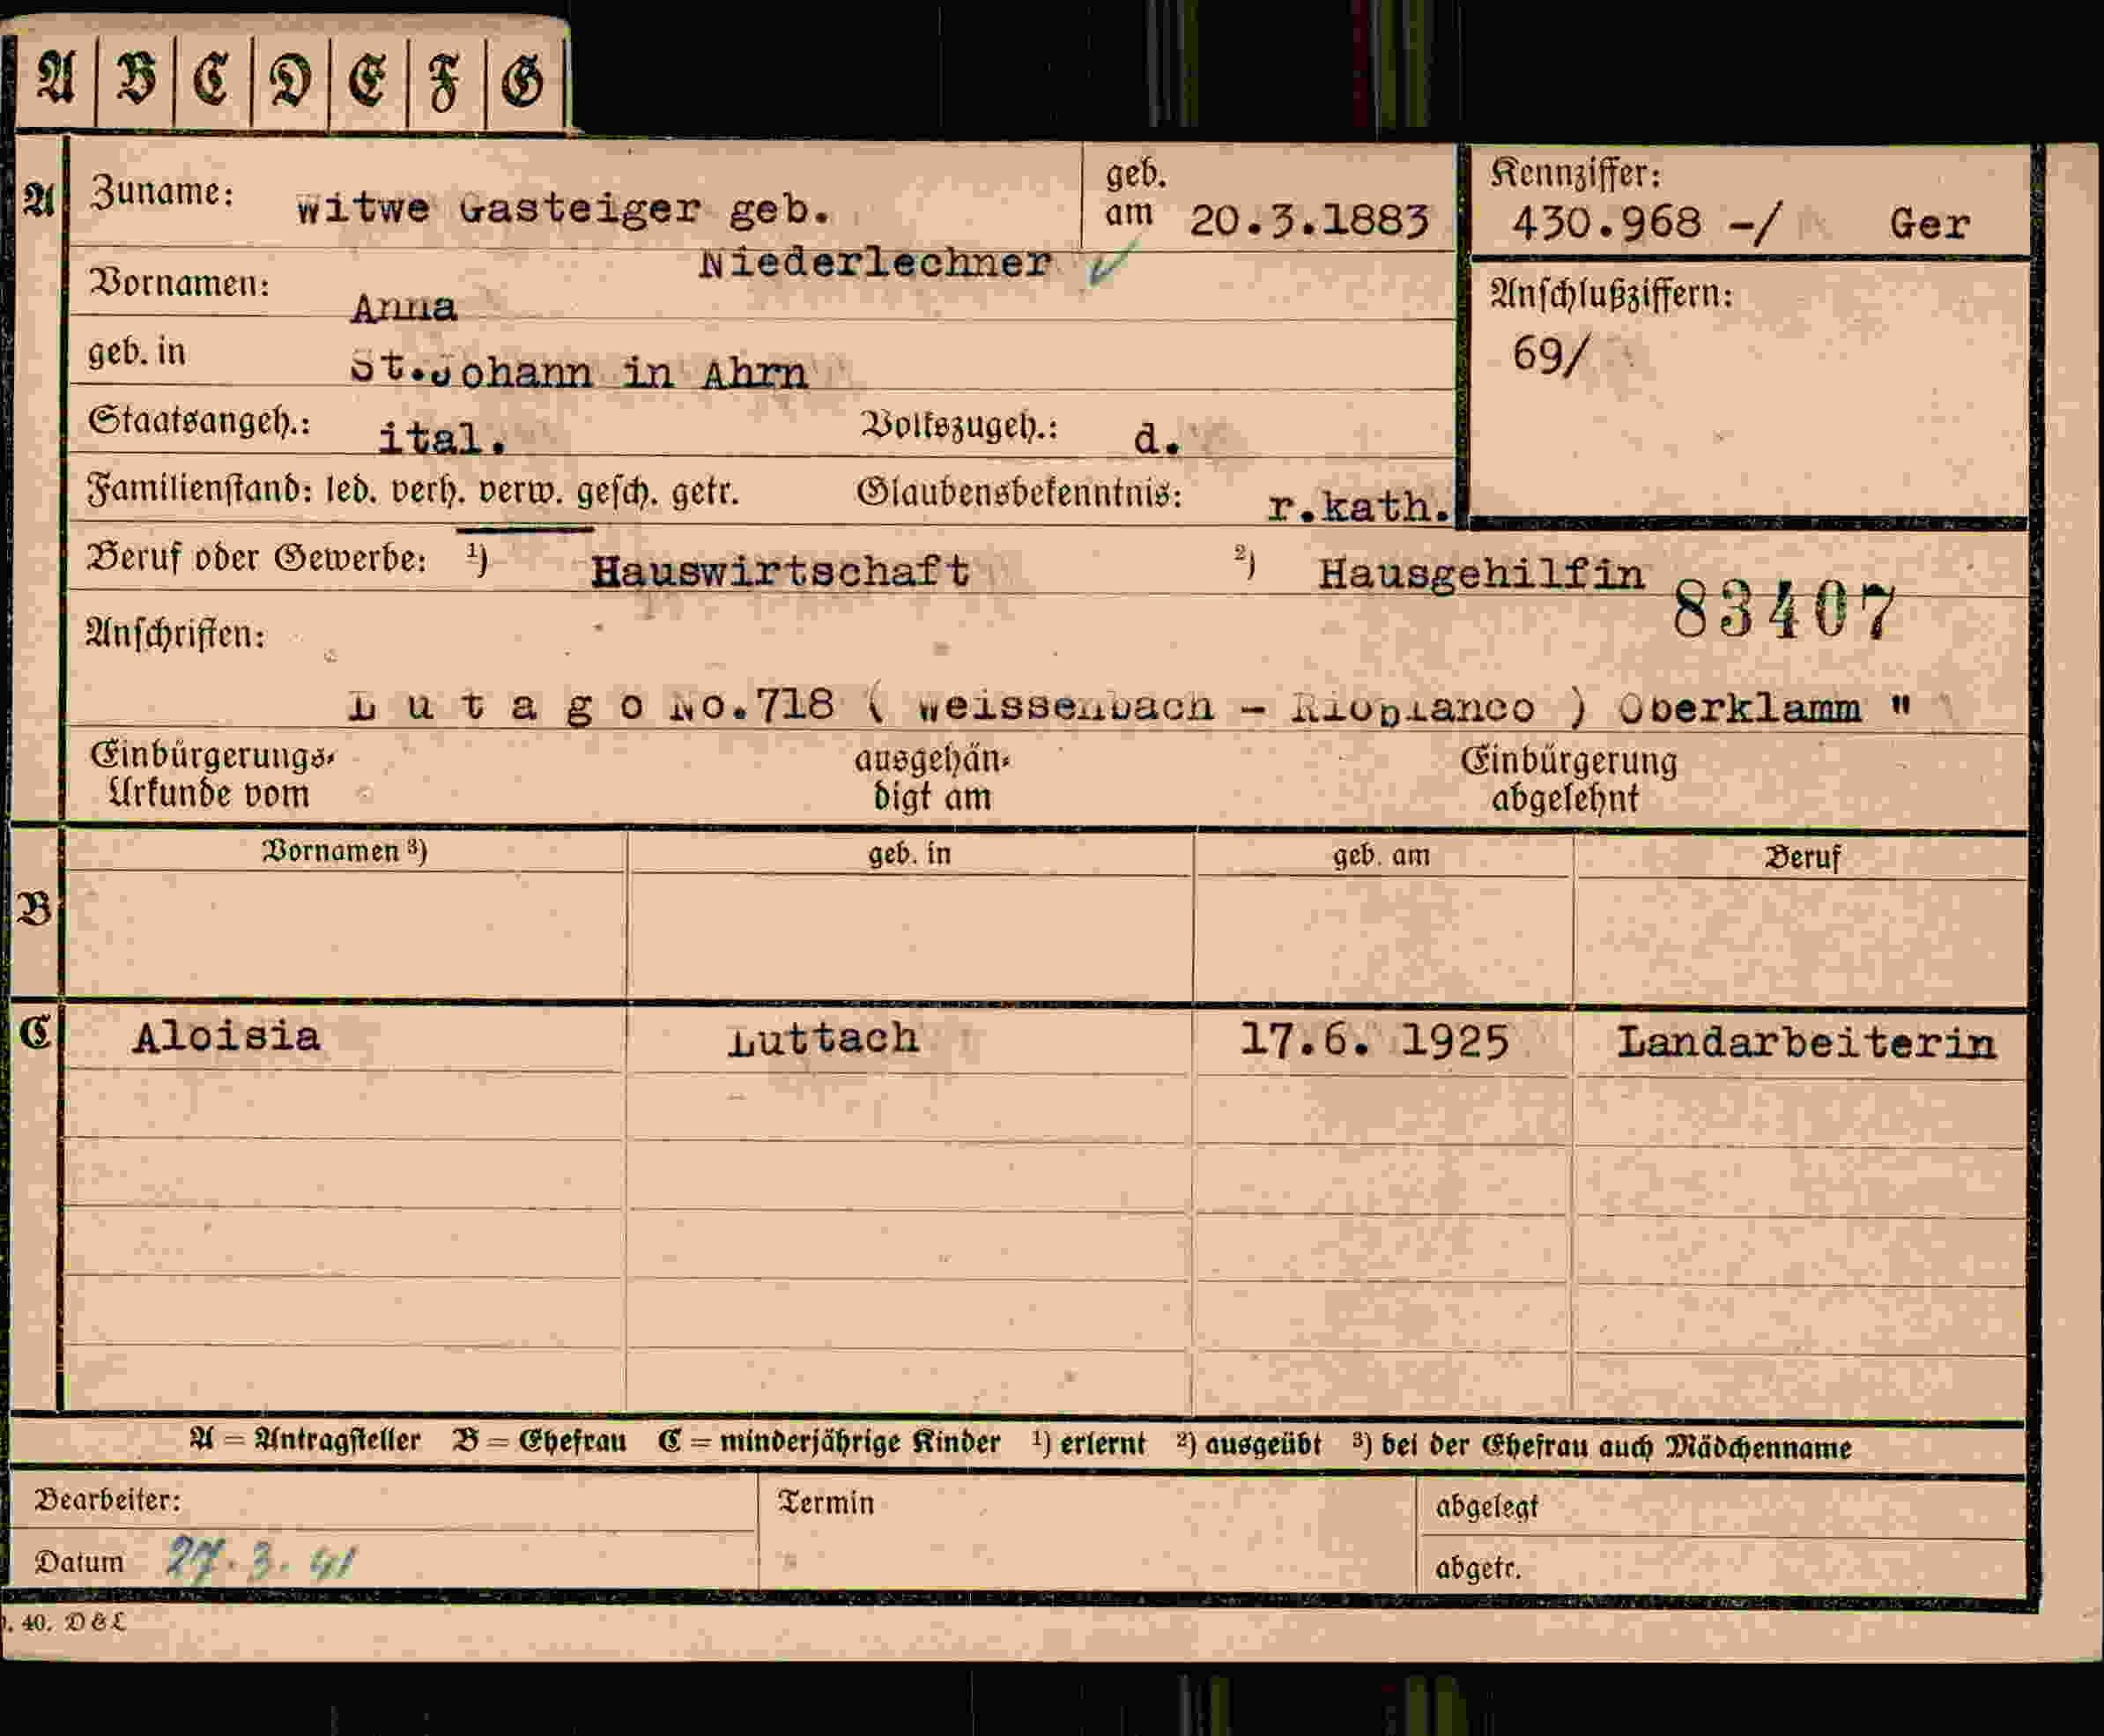 A B C D E F G
A Zuname: Witwe Gasteiger geb. geb. am 20.3.1883 Kennziffer: 430.968 -/ Ger
Niederlechner ✓
Vornamen: Anna
Anschlußziffern: 69/
geb. in St.Johann in Ahrn
Staatsangeh.: ital. Volkszugeh.: d.
Familienstand: led. verh. verw. gesch. getr. Glaubensbekenntnis: r.kath.
Beruf oder Gewerbe: ¹) Hauswirtschaft ²) Hausgehilfin
83407
Anschriften:
L u t a g o No.718 ( Weissenbach - Riobianco ) Oberklamm "
Einbürgerungs-Urkunde vom ausgehändigt am Einbürgerung abgelehnt
Vornamen ³) geb. in geb. am Beruf
B
C Aloisia Luttach 17.6. 1925 Landarbeiterin
A = Antragsteller B = Ehefrau C = minderjährige Kinder ¹) erlernt ²) ausgeübt ³) bei der Ehefrau auch Mädchenname
Bearbeiter: Termin abgelegt
Datum 27.3.41 abgetr.
. 40. D & L